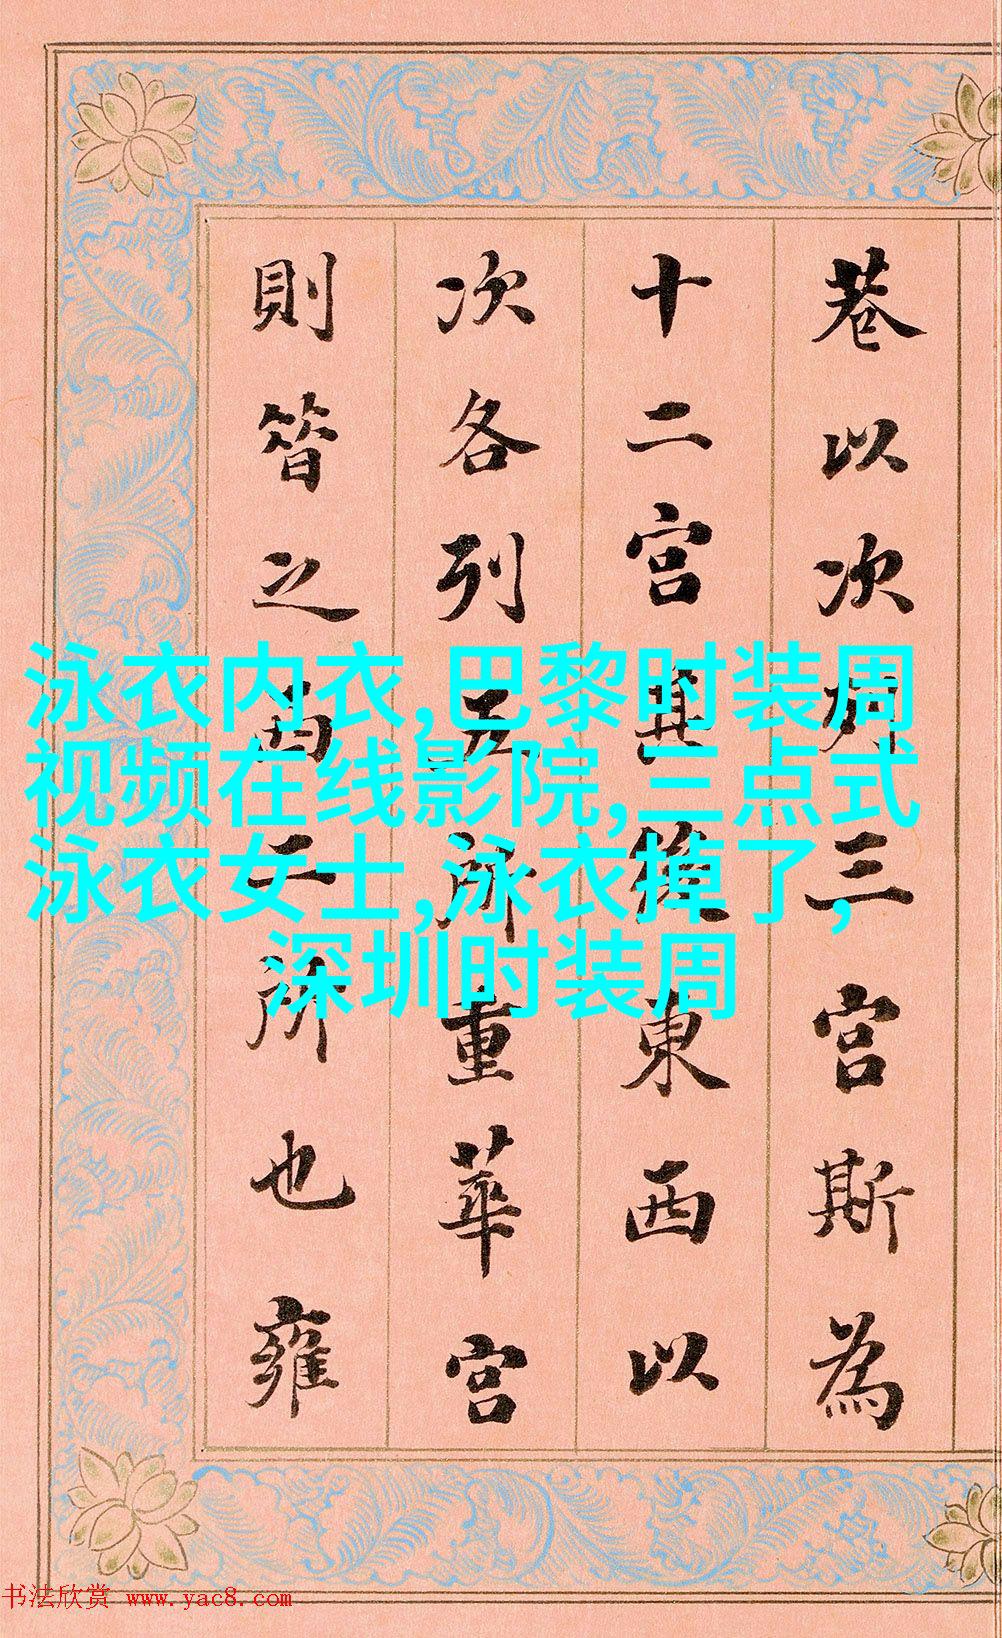 巷以次列三宫斯為
十二宫其後東西以
次各列五所重華宫
則昝之西二所也雍
泳衣内衣,巴黎时装周
视频在线影院,三点式
泳衣女士,泳衣掉了,
深圳时装周
书法欣赏 www.yac8.com